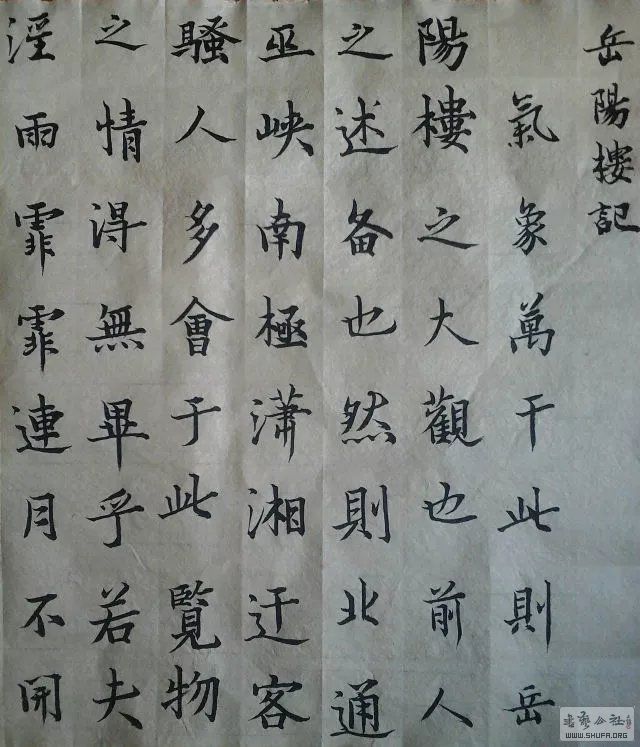 岳陽樓記
氣象萬千此則岳
陽樓之大觀也前人
之述备也然則北通
巫峡南極潇湘迁客
騷人多會于此覽物
之情得無畢乎若夫
淫雨霏霏連月不開
书艺公社
WWW.SHUFA.ORG